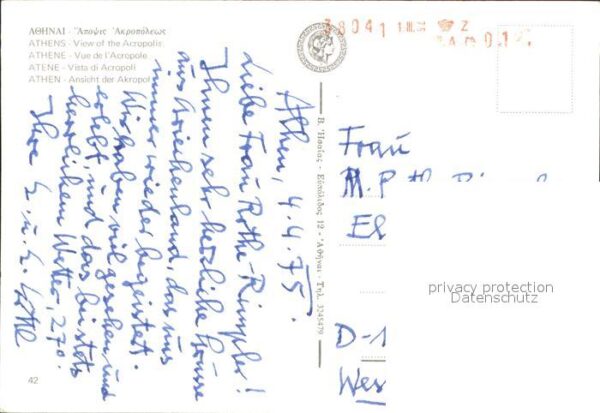 ΑΘΗΝΑΙ - Ἄποψις Ἀκροπόλεως
ATHENS - View of the Acropolis
ATHENE - Vue de l'Acropole
ATENE - Vista di Acropoli
ATHEN - Ansicht der Akropol
Athen, 4.4.75.
Liebe Frau Rothe-Rimpler!
Ihnen sehr herzliche Grüsse
aus Griechenland, das uns
immer wieder begeistert.
Wir haben viel gesehen und
erlebt, und das bei stets
herrlichem Wetter, 27°.
Ihre
42
Β. Ἡσαΐας - Εὐπόλιδος 12 - Ἀθῆναι - Τηλ. 3245479
Frau
M. P
D-1
Wes
privacy protection
Datenschutz